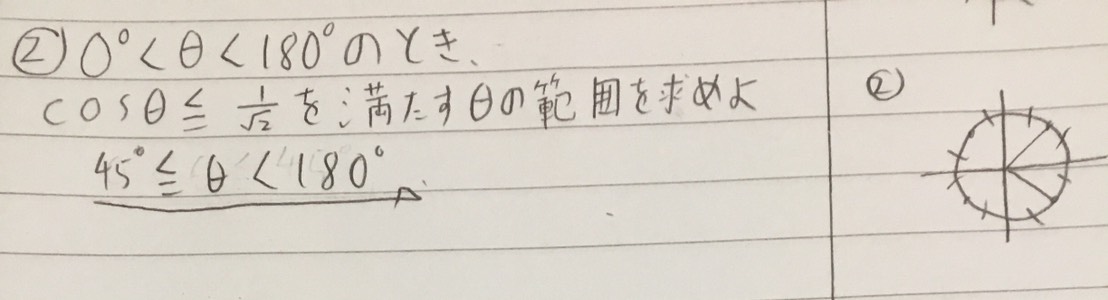 ② 0° < θ < 180° のとき、
cosθ ≦ 1/√2 を満たすθの範囲を求めよ
45° ≦ θ < 180°
②